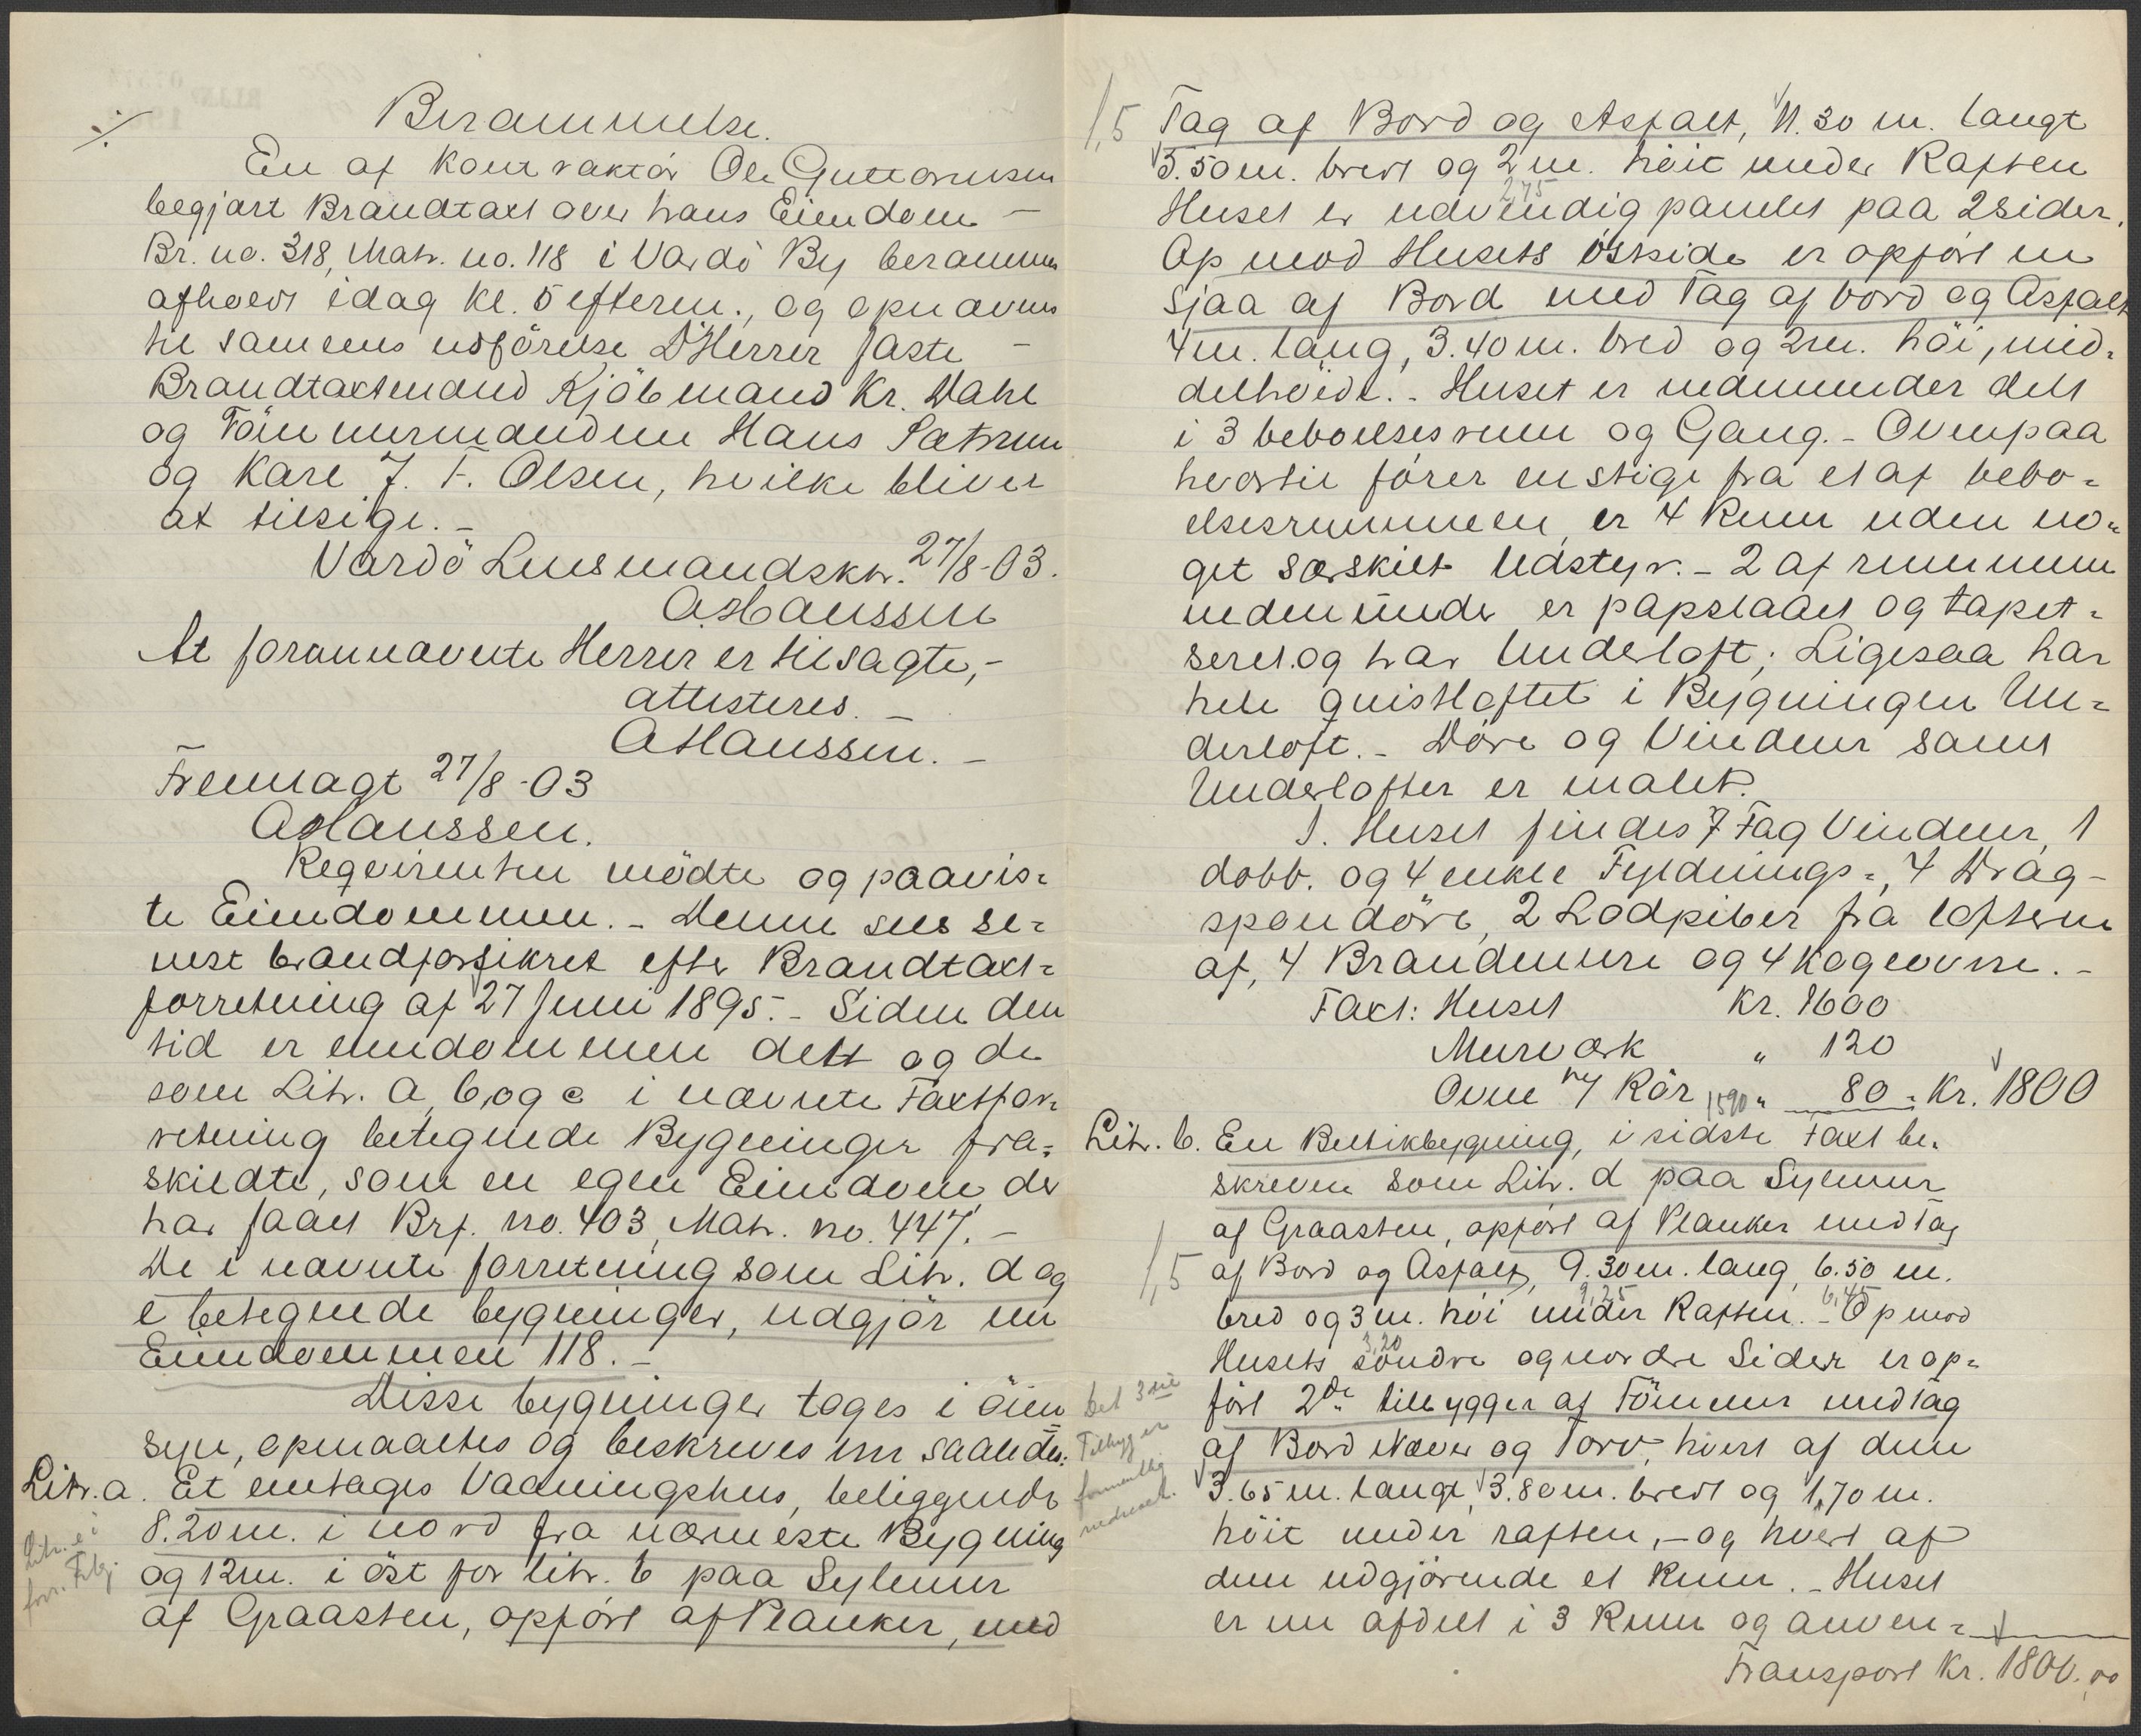 Berammelse.
En af Kontraktör Ole Guttormsen
begjært Brandtaxt over hans Eiendom –
Br. no. 318, Matr. no. 118 i Vardö By berammes
afholdt idag Kl. 5 efterm., og opnævnes
til sammens udförelse D'Herrer faste –
Brandtaxtmænd Kjöbmand Kr. Dahl
og Tömmermændene Hans Sætrum
og Karl J. F. Olsen, hvilke bliver
at tilsige. –
Vardö Lensmandsktr. 27/8-03.
A Hanssen
At forannævnte Herrer er tilsagte, –
attesteres. –
A Hanssen. –
Fremlagt 27/8-03
A Hanssen.
Reqvirenten mödte og paavis-
te Eiendommen. – Denne sees se-
nest brandforsikret efter Brandtaxt-
forretning af 27 Juni 1895. – Siden den
tid er eiendommen delt og de
som Litr. a, b, og c i nævnte Taxtfor-
retning betegnede Bygninger fra-
skildte, som en egen Eiendom der
har faaet Brf. no. 403, Matr. no. 447. –
De i nævnte forretning som Litr. d og
e betegnede bygninger, udgjör nu
Eiendommen 118. –
Disse bygninger toges i öien
syn, opmaaltes og beskreves nu saaledes:
Litr. a. Et entages Vaaningshus, beliggende
8.20 m. i nord fra nærmeste Bygning
Litr. e i
forr. Frtg.
og 12 m. i öst for litr. b paa Sylmur
af Graasten, opfört af Planker, med
1,5 Tag af Bord og Asfalt, 11.30 m. langt
5.50 m. bredt og 2 m. höit under Raften
2,75
Huset er udvendig panelet paa 2 sider.
Op mod Husets östside er opfört en
Sjaa af Bord med Tag af bord og Asfalt
4 m. lang, 3.40 m. bred og 2 m. höi, mid-
delhöide. – Huset er nedenunder delt
i 3 beboelsesrum og Gang. – Ovenpaa
hvortil förer en stige fra et af bebo-
elsesrummene, er 4 Rum uden no-
get særskilt Udstyr. – 2 af rummene
nedenunder er papslaaet og tapet-
seret og har Underloft; Ligesaa har
hele qvistloftet i Bygningen Un-
derloft. – Döre og Vinduer samt
Underlofter er malet.
I Huset findes 7 Fag Vinduer, 1
dobb. og 4 enkle Fyldnings-, 4 Drag-
spondöre, 2 Lodpiber fra lofterne
af, 4 Brandmure og 4 Kogeovne. –
Taxt: Huset Kr. 1600
Murværk " 120
Ovne m/ Rör 1590 " 80 - Kr. 1800
Litr. b. En Butikbygning, i sidste Taxt be-
skreven som Litr. d paa Sylmur
af Graasten, opfört af Planker med Tag
1,5 af Bord og Asfalt, 9.30 m. lang, 6.50 m.
9,25 6,45
bred og 3 m. höi under Raften. – Op mod
3,20
Husets söndre og nordre Sider er op-
fört 2de tilbygger af Tömmer med Tag
af Bord Næver og Torv, hvert af dem
3.65 m. langt, 3.80 m. bredt og 1,70 m.
Det 3die
Tilbyg er
formentlig
nedrevet.
höit under raften, – og hvert af
dem udgjörende et Rum. – Huset
er nu afdelt i 3 Rum og anven-
Transport Kr. 1800.00